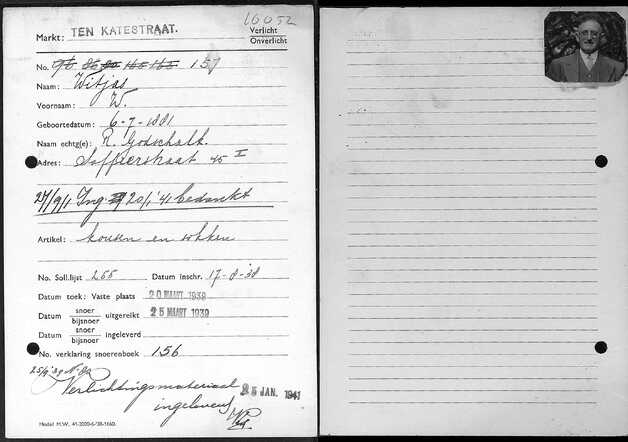 16052
Markt: TEN KATESTRAAT.
Verlicht
Onverlicht
No. 157
Naam: Witjas
Voornaam: W.
Geboortedatum: 6-7-1881
Naam echtg(e): R. Godschalk.
Adres: Saffierstraat 45 I
27/9/1 Ing 20/1 '41 bedankt
Artikel: kousen en sokken
No. Soll.lijst 255 Datum inschr. 17-8-38
Datum toek: Vaste plaats 20 MAART 1939
Datum snoer/bijsnoer uitgereikt 25 MAART 1939
Datum snoer/bijsnoer ingeleverd
No. verklaring snoerenboek 156
25/9 '39
Verlichtingsmateriaal 25 JAN. 1941
ingeleverd
Model M.W. 41-2000-6-'38-1660.